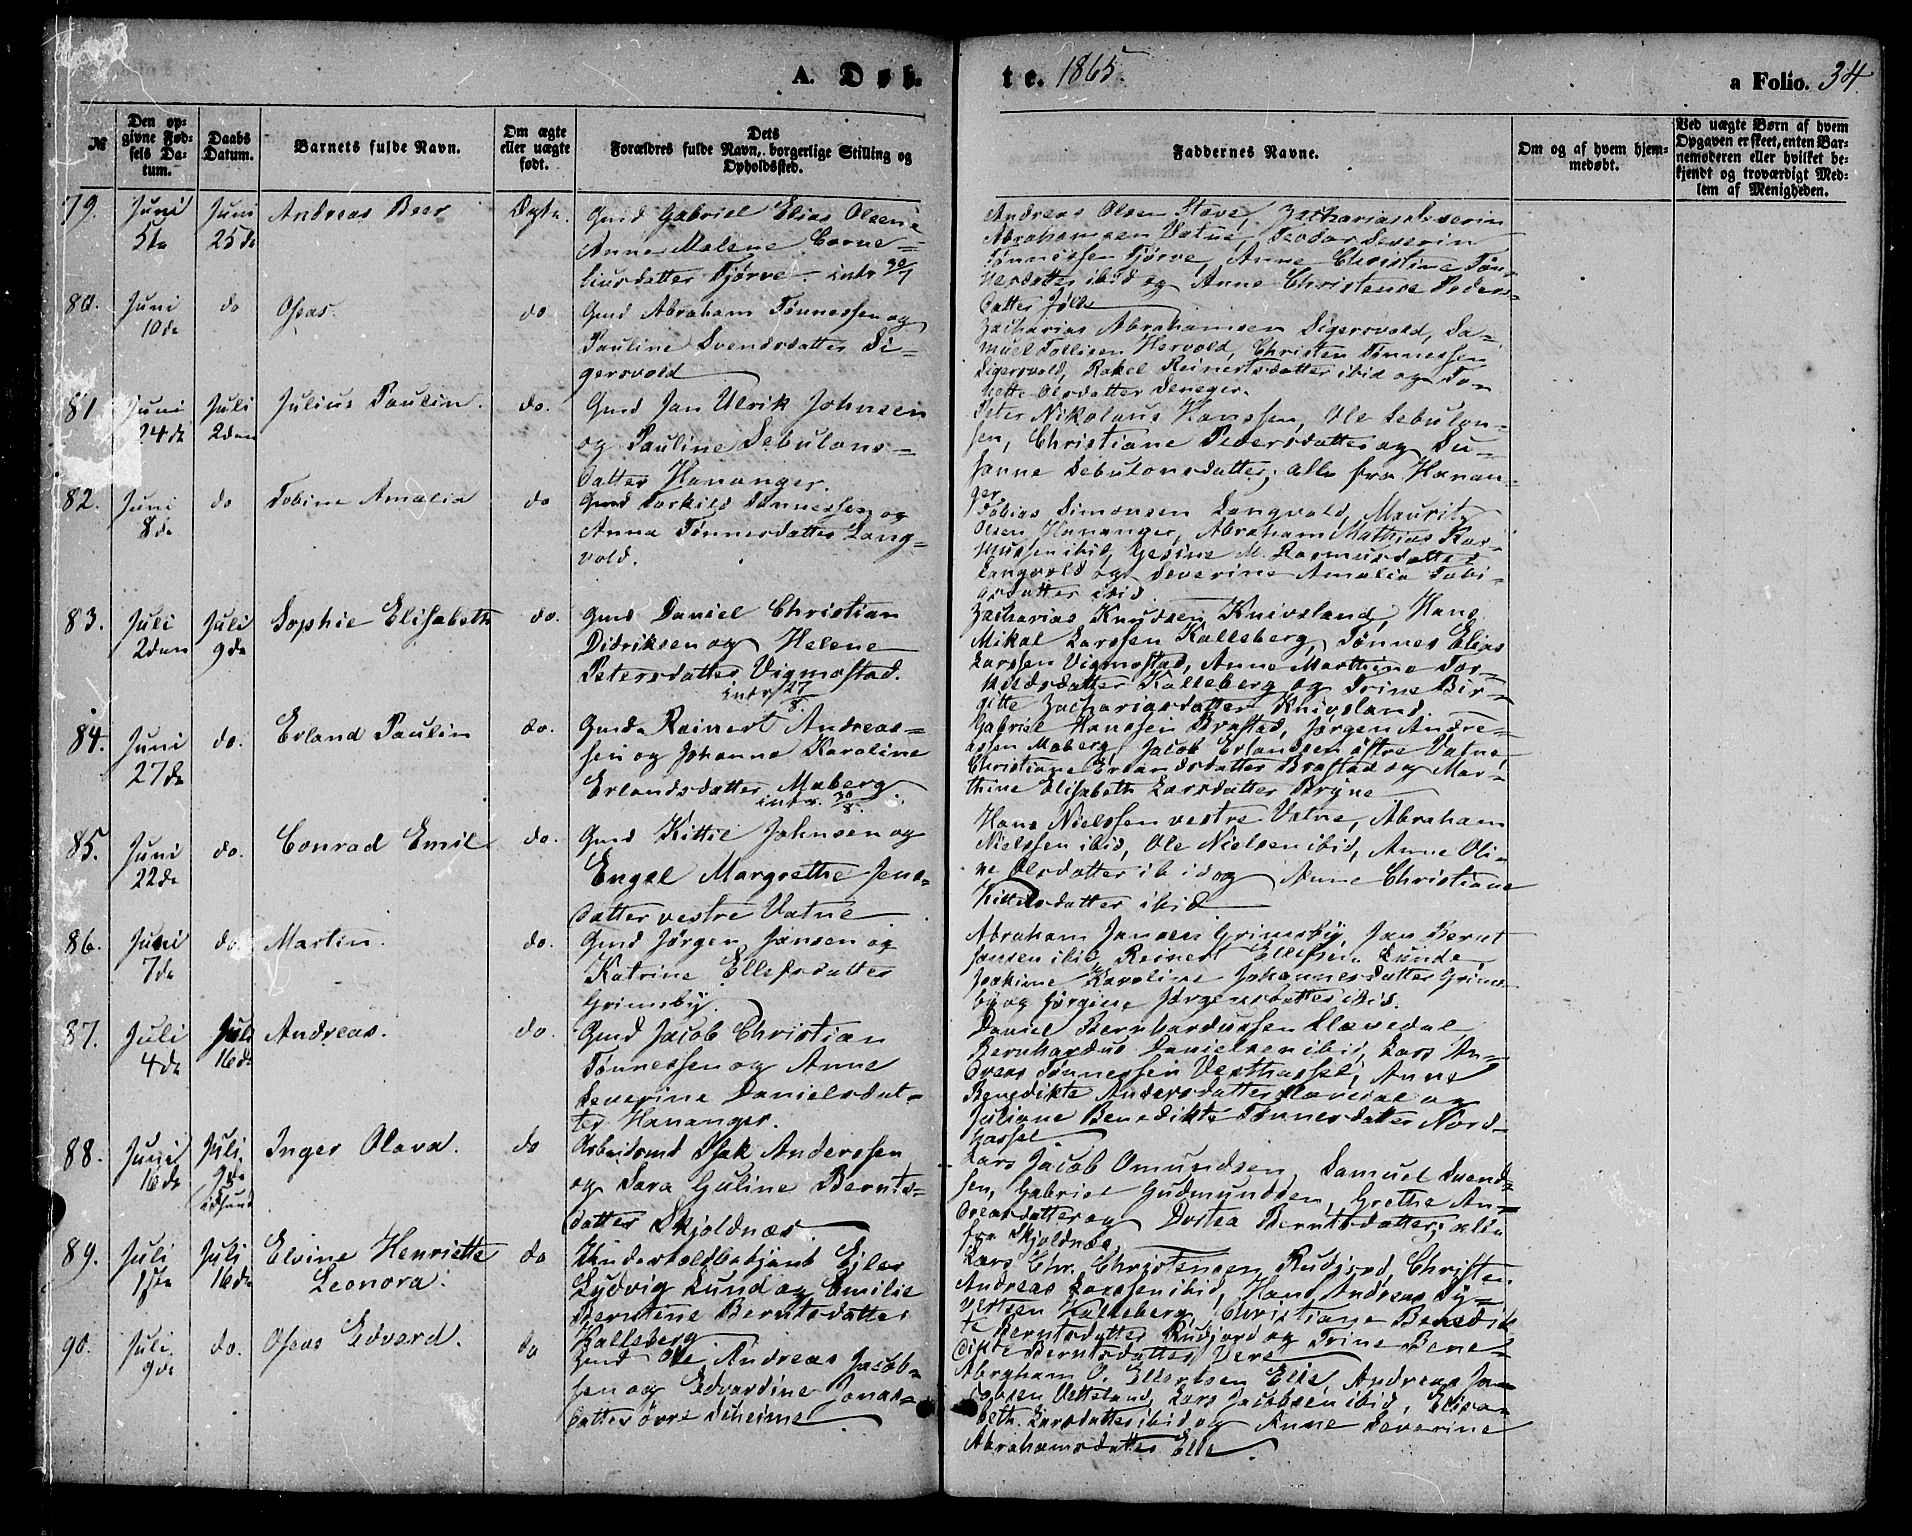 A. Døb
te. 1865.
a Folio. 34
№
Den op-
givne Fød-
sels Da-
tum.
Daabs
Datum.
Barnets fulde Navn.
Om ægte
eller uægte
født.
Dets
Forældres fulde Navn, borgerlige Stilling og
Opholdssted.
Faddernes Navne.
Om og af hvem hjem-
medøbt.
Ved uægte Børn af hvem
Opgaven er skeet, enten Bar-
nemoderen eller hvilket be-
kjendt og troværdigt Med-
lem af Menigheden.
79. Juni 5te
Juni 25de
Andreas Beer
Ægte.
Gmd Gabriel Elias Olsen
Anne Malene Corne-
liusdatter Tjørve - intr 30/7
Andreas Olsen Stave, Zacharias Severin
Abrahamsen Vatne, Teodor Severin
Tønnessen Tjørve, Anne Christine Tøn-
nesdatter ibid og Anne Christense Peders-
datter Jølle
80. Juni 10de
do
Oseas.
do
Gmd Abraham Tønnessen og
Pauline Svendsdatter Si-
gersvold
Zacharias Abrahamsen Sigersvold, Sa-
muel Tollisen Hervold, Christen Tønnessen
Sigersvold, Rakel Reinertsdatter ibid og To-
nette Olsdatter
81 Juni 24de
Juli 2den
Julius Paulin.
do.
Gmd Jan Ulrik Johnsen
og Pauline Sebulons-
datter Hananger.
Peter Nikolaus Hanssen, Ole Sebulon-
sen, Christiane Pedersdatter og Su-
sanne Sebulonsdatter, alle fra Hanan-
ger.
82. Juni 8de
do
Tobine Amalia
do
Gmd Torkild Tønnessen og
Anna Tønnesdatter Lang-
vold.
Tobias Simonsen Langvold, Mauritz
Olsen Hananger, Abraham Mathias Ras-
mussen ibid, Gesine M. Rasmusdatter
Langvold og Severine Amalia Tobi-
asdatter ibid
83. Juli 2den
Juli 9de
Sophie Elisabeth
do.
Gmd Daniel Christian
Didriksen og Helene
Petersdatter Vigmostad.
intr 27/8.
Zacharias Knudsen Knivsland, Hans
Mikal Larssen Kalleberg, Tønnes Elias
Larssen Vigmostad, Anne Marthine Tor-
kildsdatter Kalleberg og Trine Bir-
gitte Zachariasdatter Knivsland.
84. Juni 27de
do.
Erland Paulin
do.
Gmd. Reinert Andreas-
sen og Johanne Karoline
Erlandsdatter Maberg.
intr. 20/8.
Gabriel Hanssen Brastad, Jørgen Andre-
assen Maberg, Jacob Erlandsen østre Vatne,
Christiane Erlandsdatter Brastad og Mar-
thine Elisabeth Larsdatter Bryne
85. Juni 22de
do.
Conrad Emil
do.
Gmd Kittil Johnsen og
Engel Margrethe Jens-
datter vestre Vatne
Hans Nielssen vestre Vatne, Abraham
Nielssen ibid, Ole Nielsen ibid, Anne Oli-
ne Olsdatter ibid og Anne Christiane
Kittelsdatter ibid
86. Juni 7de
do.
Martin.
do.
Gmd Jørgen Jansen og
Katrine Ellefsdatter
Grimsby.
Abraham Jansen Grimsby, Jan Bernt
Jansen ibid, Reinert Ellefsen Lunde,
Joakime Karoline Johannesdatter Grims-
by og Jørgine Jørgensdatter ibid.
87. Juli 4de
Juli 16de
Andreas.
do
Gmd Jacob Christian
Tønnessen og Anne
Severine Danielsdat-
ter Hananger.
Daniel Bernhardussen Slævedal
Bernhardus Danielsen ibid, Lars An-
dreas Tønnessen Vesthassel, Anne
Benedikte Andersdatter Slævedal og
Juliane Benedikte Tønnesdatter Nord-
hassel
88. Juni 16de
Juli 9de
Inger Olava.
do
Arbeidsmd Isak Anderssen
og Sara Guline Bernts-
datter Skjoldnæs.
Lars Jacob Omundsen, Samuel Svend-
sen, Gabriel Gudmundsen, Grethe An-
dreasdatter og Dortea Berntsdatter, alle
fra Skjoldnæs.
89. Juli 1ste
Juli 16de
Elvine Henriette
Leonora.
do
Underholdbetjent Ejler
Ludvig Lund og Emilie
Berntine Berntsdatter
Kalleberg
Lars Chr. Christensen Rudjord, Christen
Andreas Larssen ibid, Hans Andreas Sy-
vertsen Kalleberg, Christiane Benedik-
te Berntsdatter Rudjord og Trine Bene-
dikte Berntsdatter Vere
90. Juli 9de
do.
Oseas Edvard.
do
Gmd Ole Andreas Jacob-
sen og Edvardine Jonas-
datter øvre Skeime
Abraham O. Ellertsen Elle, Andreas Ja-
cobsen Vetteland, Lars Jacobsen ibid, Elisa-
beth Larsdatter ibid og Anne Severine
Abrahamsdatter Elle.